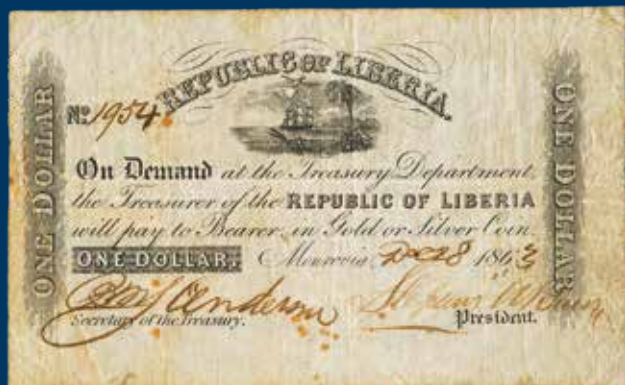 REPUBLIC OF LIBERIA.
No. 1954
ONE DOLLAR
ONE DOLLAR
On Demand at the Treasury Department
the Treasurer of the REPUBLIC OF LIBERIA
will pay to Bearer, in Gold or Silver Coin.
ONE DOLLAR. Monrovia 28 1863
Anderson
Secretary of the Treasury.
President.